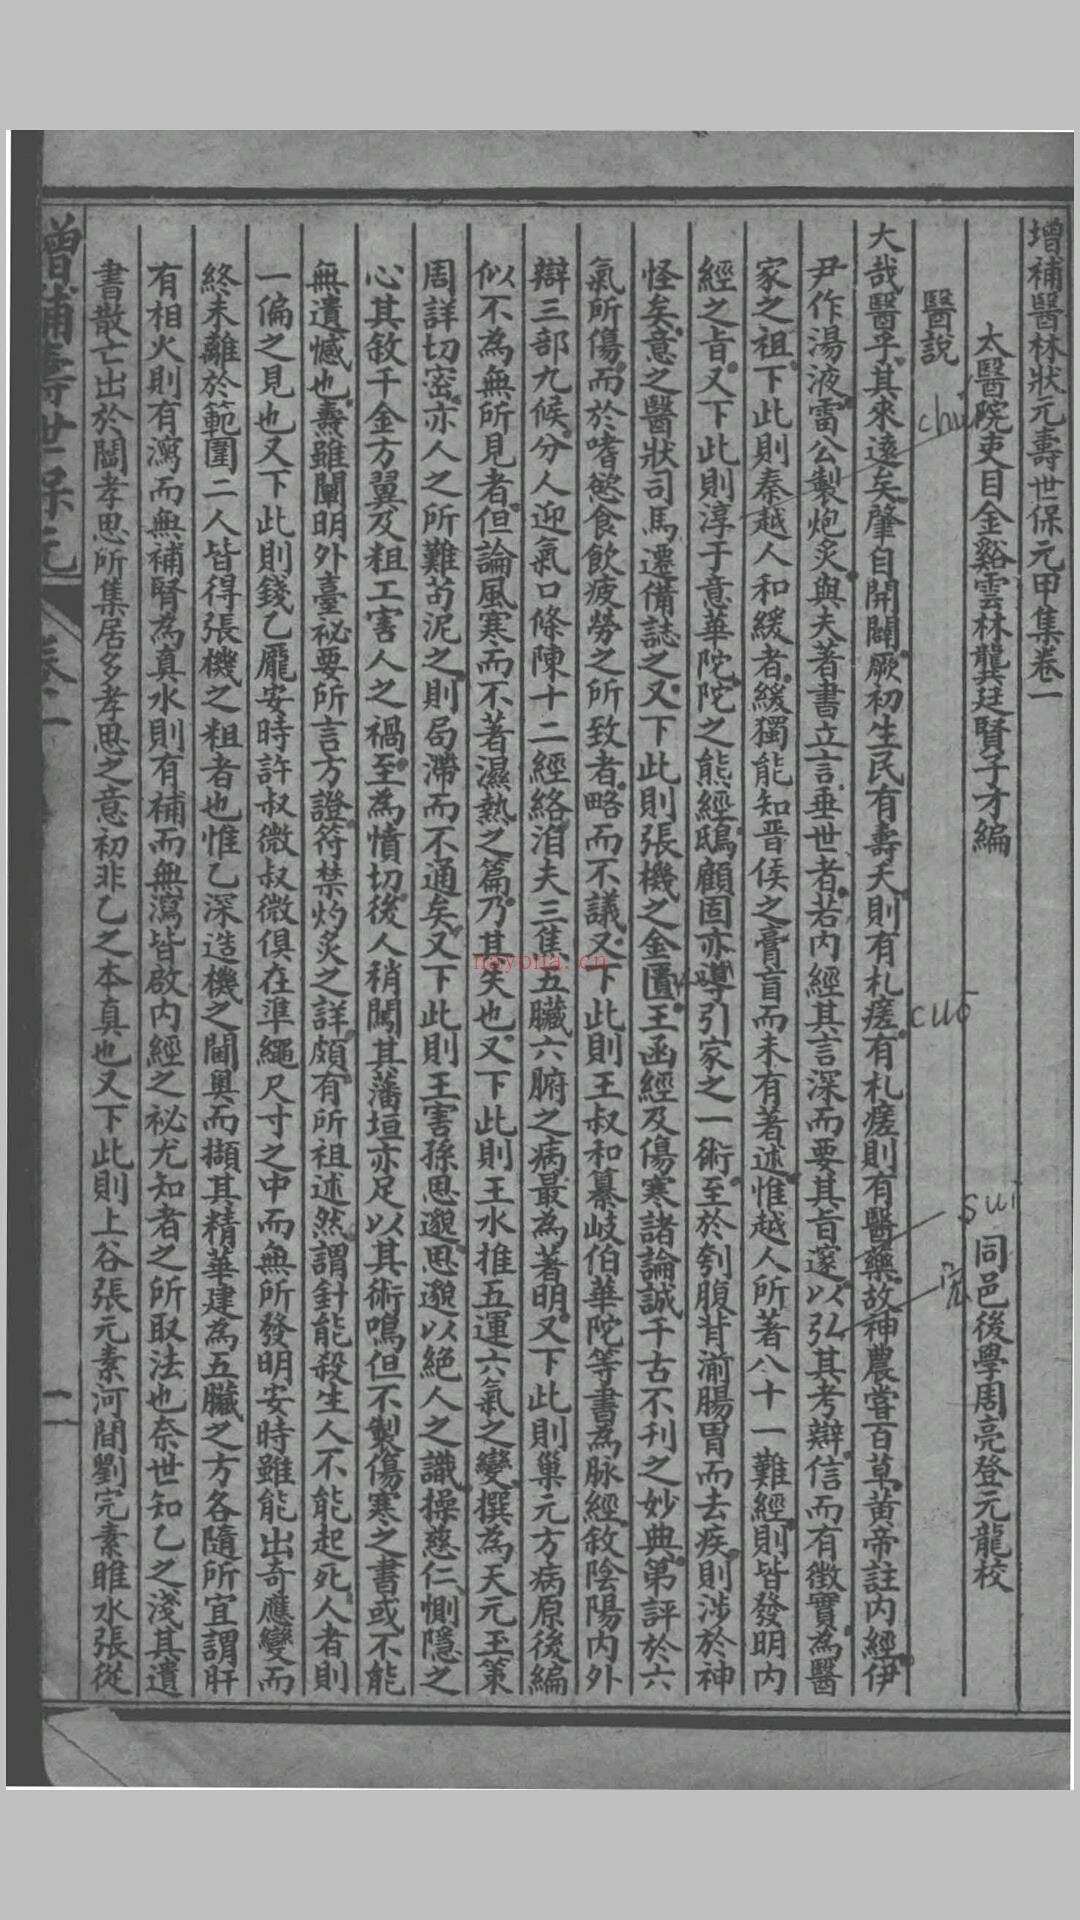 增補醫林狀元壽世保元甲集卷一
太醫院吏目金谿雲林龔廷賢子才編
同邑後學周亮登元龍校
醫說
大哉醫乎其來遠矣肇自開闢厥初生民有壽夭則有札瘥有札瘥則有醫藥故神農嘗百草黃帝註內經伊
尹作湯液雷公製炮炙與夫著書立言垂世者若內經其言深而要其旨邃以弘其考辯信而有徵實為醫
家之祖下此則秦越人和緩者緩獨能知晉侯之膏肓而未有著述惟越人所著八十一難經則皆發明內
經之旨又下此則淳于意華陀陀之熊經鴟顧固亦導引家之一術至於刳腹背湔腸胃而去疾則涉於神
怪矣意之醫狀司馬遷備誌之又下此則張機之金匱王函經及傷寒諸論誠千古不刊之妙典第評於六
氣所傷而於嗜慾食飲疲勞之所致者略而不議又下此則王叔和纂岐伯華陀等書為脉經敘陰陽內外
辯三部九候分人迎氣口條陳十二經絡洎夫三焦五臟六腑之病最為著明又下此則巢元方病原後編
似不為無所見者但論風寒而不著濕熱之篇乃其失也又下此則王水推五運六氣之變撰為天元玉策
周詳切密亦人之所難苟泥之則局滯而不通矣又下此則王害孫思邈思邈以絕人之識操慈仁惻隱之
心其敘千金方翼及粗工害人之禍至為憤切後人稍闖其藩垣亦足以其術鳴但不製傷寒之書或不能
無遺憾也燾雖闡明外臺祕要所言方證符禁灼炙之詳頗有所祖述然謂針能殺生人不能起死人者則
一偏之見也又下此則錢乙龐安時許叔微叔微俱在準繩尺寸之中而無所發明安時雖能出奇應變而
終未離於範圍二人皆得張機之粗者也惟乙深造機之閫奧而擷其精華建為五臟之方各隨所宜謂肝
有相火則有瀉而無補腎為真水則有補而無瀉皆啟內經之祕尤知者之所取法也奈世知乙之淺其遺
書散亡出於閻孝思所集居多孝思之意初非乙之本真也又下此則上谷張元素河間劉完素睢水張從
增補壽世保元
卷一
一
chú
cuō
suì
naycha.cn